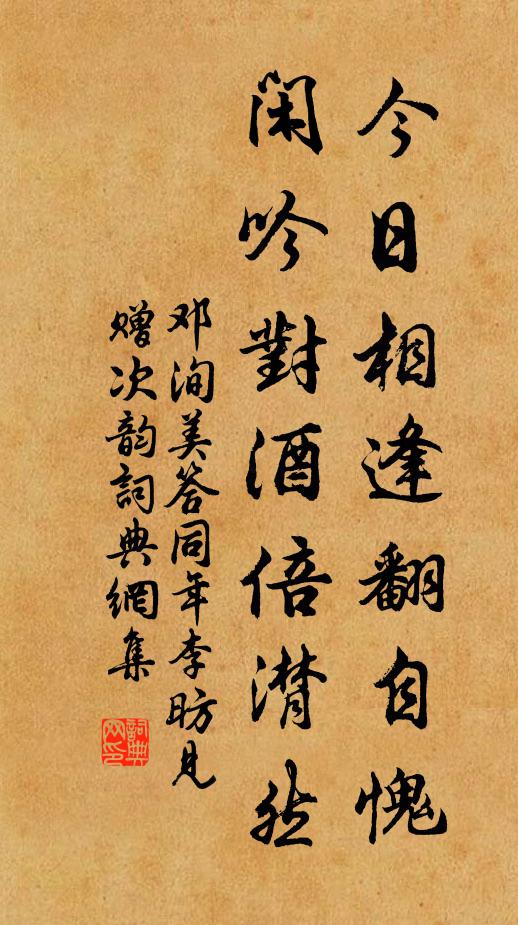 今日相逢翻自愧
闲吟對酒倍潸然
邓洵美答同年李昉見
赠次韵詞典網集
詞典
网印